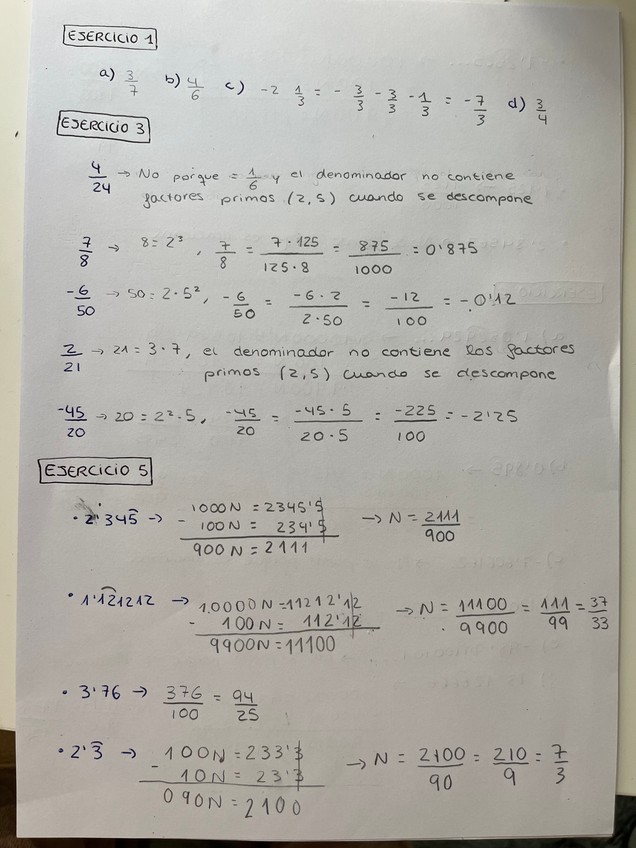 EJERCICIO 1
a) 3/7 b) 4/6 c) -2 1/3 = - 3/3 - 3/3 - 1/3 = - 7/3 d) 3/4
EJERCICIO 3
4/24 → No porque = 1/6 y el denominador no contiene
factores primos (2,5) cuando se descompone
7/8 → 8 = 2³, 7/8 = 7·125/125·8 = 875/1000 = 0'875
-6/50 → 50 = 2·5², -6/50 = -6·2/2·50 = -12/100 = -0'12
2/21 → 21 = 3·7, el denominador no contiene los factores
primos (2,5) cuando se descompone
-45/20 → 20 = 2²·5, -45/20 = -45·5/20·5 = -225/100 = -2'25
EJERCICIO 5
· 2'345̂ → 1000N = 2345'5 → N = 2111/900
- 100N = 234'5
900N = 2111
· 1'1̂2̂1212 → 10000N = 11212'12 → N = 11100/9900 = 111/99 = 37/33
- 100N = 112'12
9900N = 11100
· 3'76 → 376/100 = 94/25
· 2'3̂ → 100N = 233'3 → N = 2100/90 = 210/9 = 7/3
- 10N = 23'3
090N = 2100